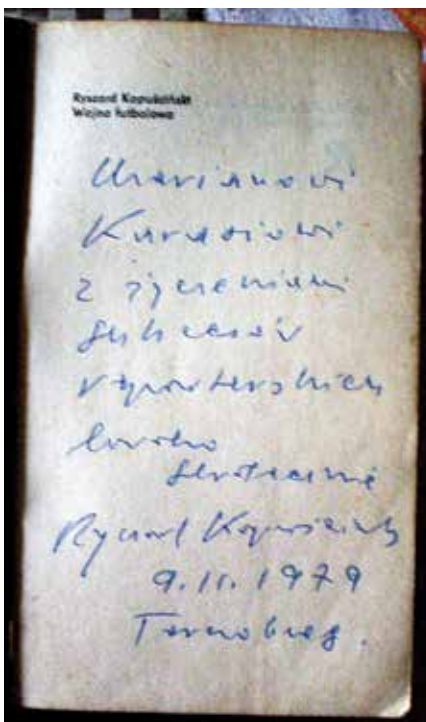 Ryszard Kapuściński
Wojna futbolowa
Marianowi
Karasiowi
z życzeniami
sukcesów
reporterskich
bardzo
serdecznie
Ryszard Kapuściński
9.11.1979
Tarnobrzeg.